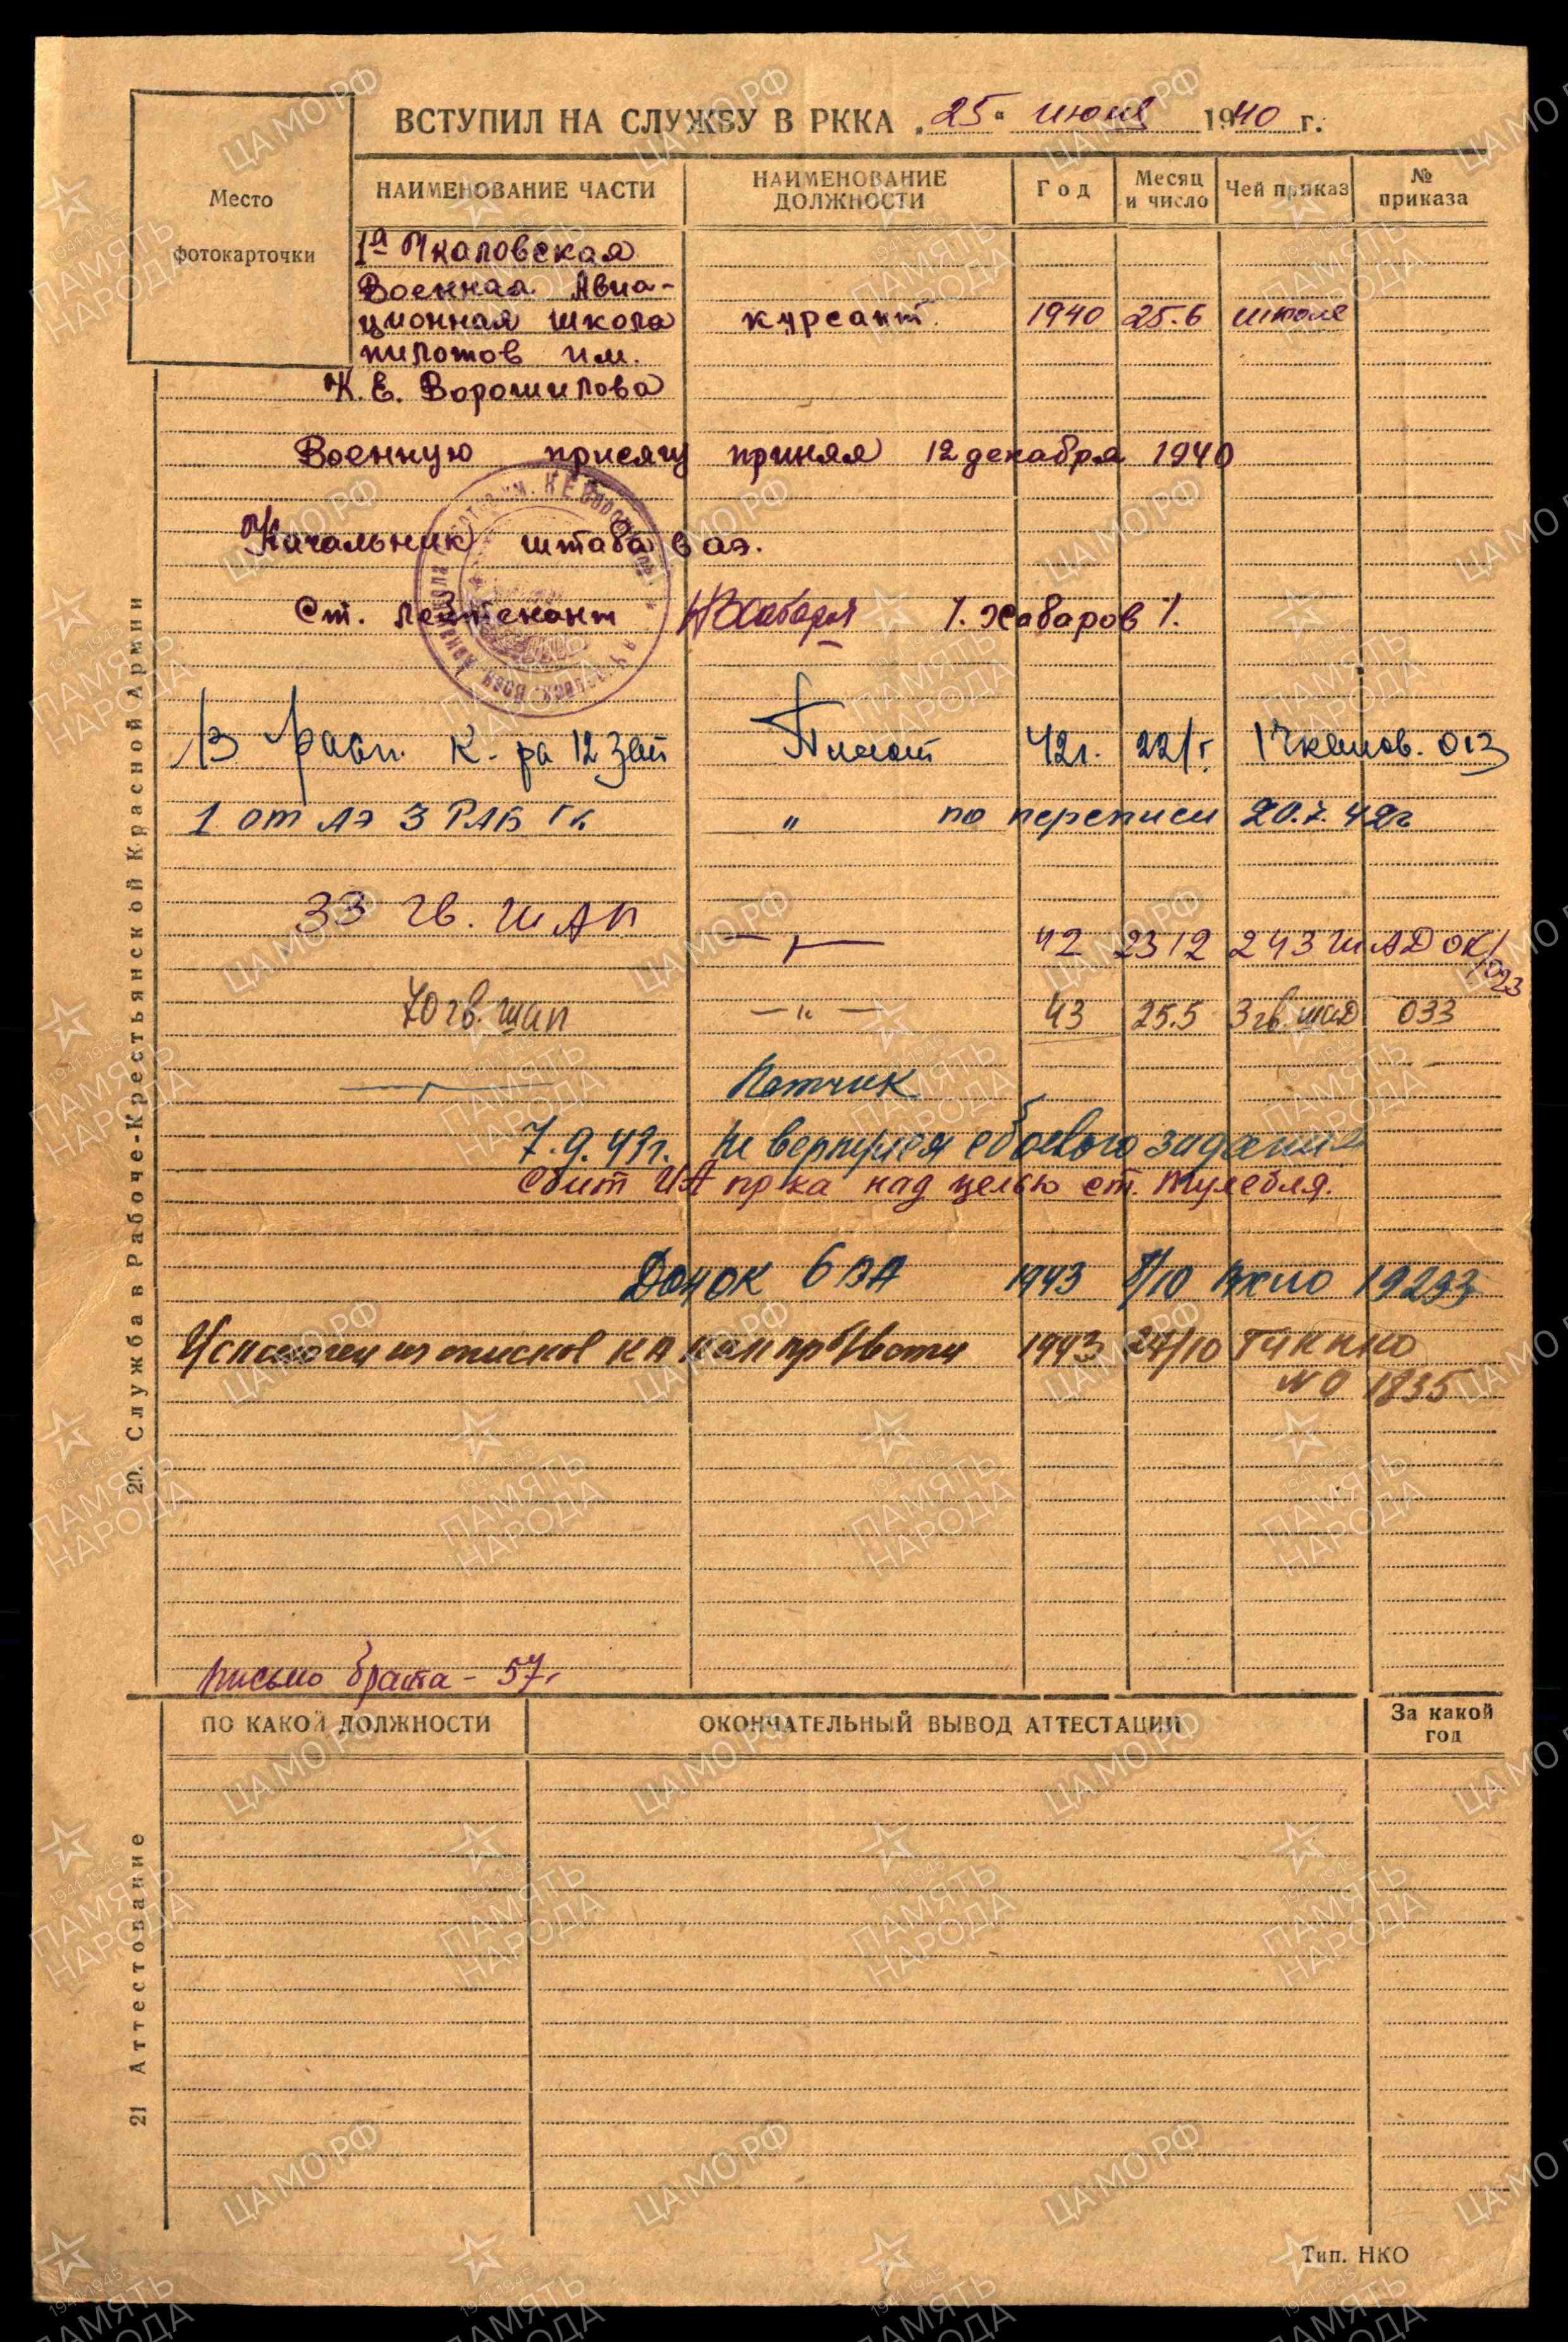 ВСТУПИЛ НА СЛУЖБУ В РККА „25" июня 1940 г.
Место
фотокарточки
НАИМЕНОВАНИЕ ЧАСТИ НАИМЕНОВАНИЕ ДОЛЖНОСТИ Год Месяц и число Чей приказ № приказа
1ª Чкаловская
Военная Авиа-
ционная школа курсант. 1940 25.6 школе
пилотов им.
К. Е. Ворошилова
Военную присягу принял 12 декабря 1940
Начальник штаба аэ.
Ст. лейтенант /. Хабаров /.
В расп. К-ра 12 Зап Пилот 42г. 22/ 1 Чкалов. 013
1 от АЭ 3 РАБ " по переписи 20.7.42г
33 гв. ШАП —"— 42 23 12 243 ШАД ОК/023
70 гв. шап —"— 43 25.5 3 гв. шад 033
—"— Летчик
7.9.43г. Не вернулся с боевого задания
Сбит ИА пр-ка над целью ст. Тулебля.
Дон ОК 6 ВА 1943 /10 19293
Исключен из списков КА как пр б/вести 1943 27/10 ГУК НКО
№ 01835
Письмо брата - 57г
20. Служба в Рабоче-Крестьянской Красной Армии
ПО КАКОЙ ДОЛЖНОСТИ ОКОНЧАТЕЛЬНЫЙ ВЫВОД АТТЕСТАЦИИ За какой год
21 Аттестование
Тип. НКО
ЦАМО.РФ
1941-1945
ПАМЯТЬ
НАРОДА